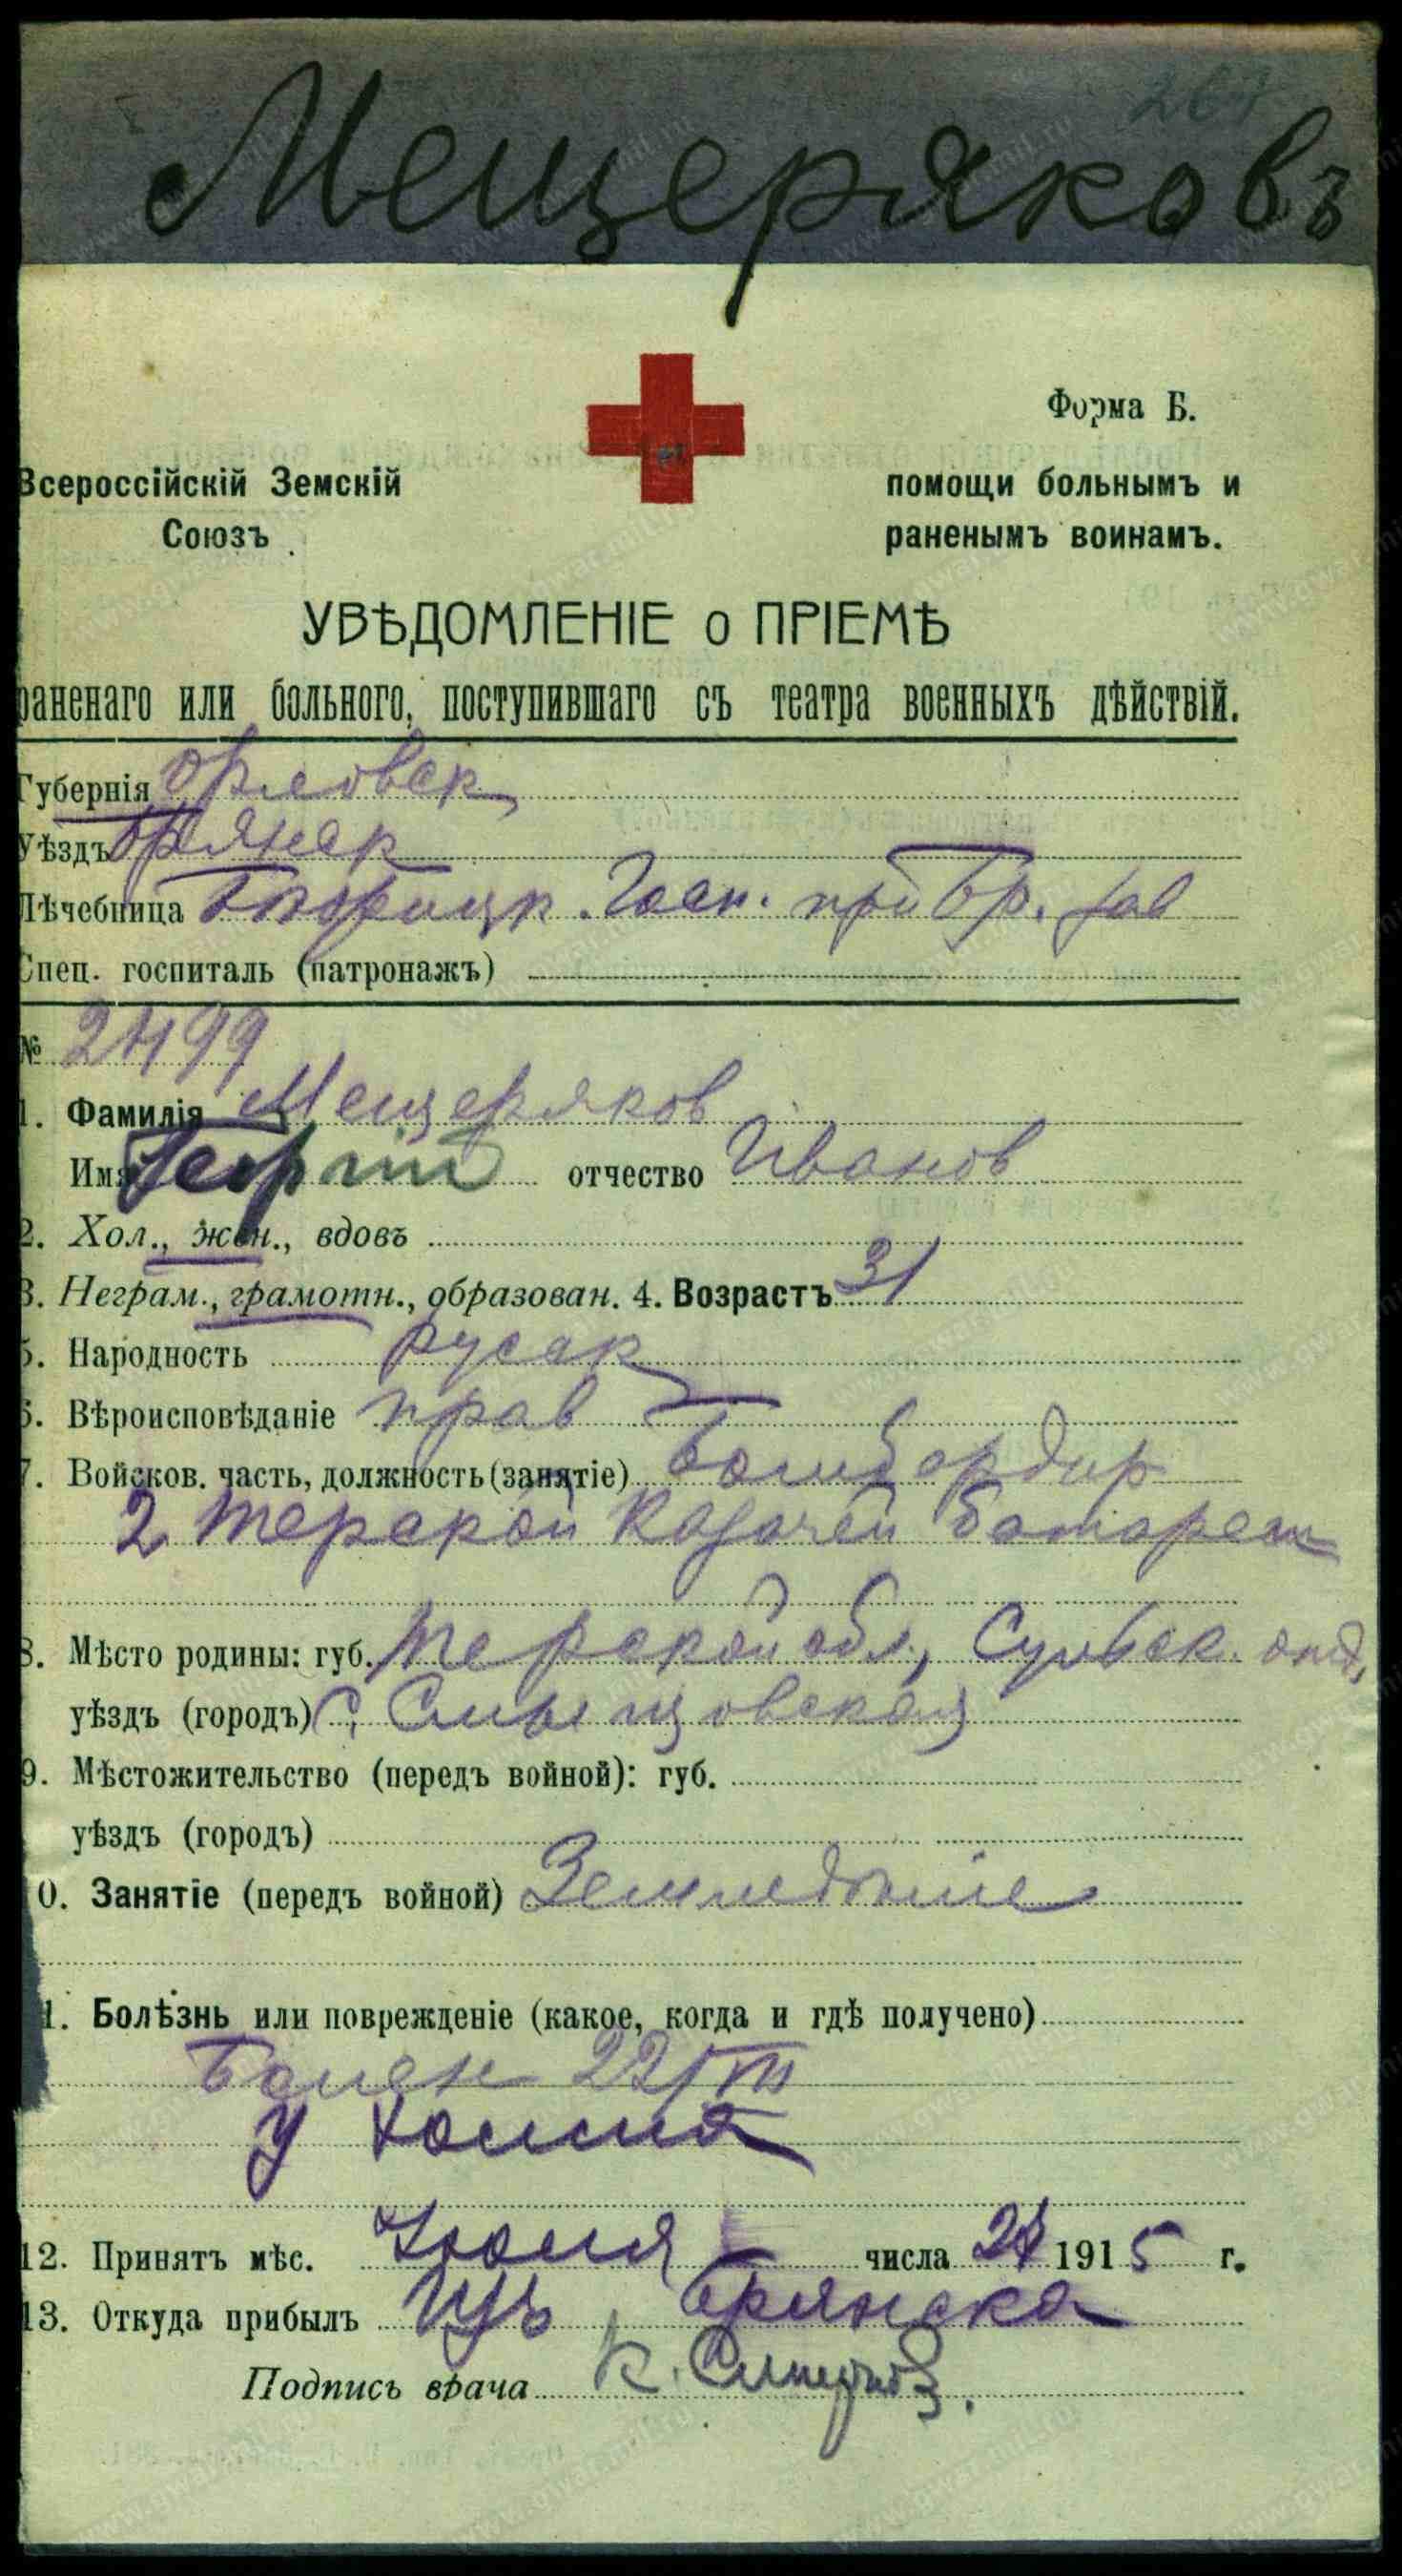 267
Мещеряковъ
Форма Б.
Всероссійскій Земскій
Союзъ
помощи больнымъ и
раненымъ воинамъ.
УВѢДОМЛЕНІЕ о ПРІЕМѢ
раненаго или больного, поступившаго съ театра военныхъ дѣйствій.
Губернія Орловск
Уѣздъ Брянск
Лѣчебница Госп. при Бр. зав
Спец. госпиталь (патронажъ)
№ 2499
1. Фамилія Мещеряков
Имя Георгій отчество Иванов
2. Хол., жен., вдовъ
3. Неграм., грамотн., образован. 4. Возрастъ 31
5. Народность русск
6. Вѣроисповѣданіе прав
7. Войсков. часть, должность (занятіе) Бомбардир
2 Терской Казачей батареи
8. Мѣсто родины: губ. Терской обл, отд,
уѣздъ (городъ) С,
9. Мѣстожительство (передъ войной): губ.
уѣздъ (городъ)
10. Занятіе (передъ войной) Земледѣліе
11. Болѣзнь или поврежденіе (какое, когда и гдѣ получено)
Болен 22/VII
у Холма
12. Принятъ мѣс. Іюля числа 1915 г.
13. Откуда прибылъ Изъ Брянска
Подпись врача К.